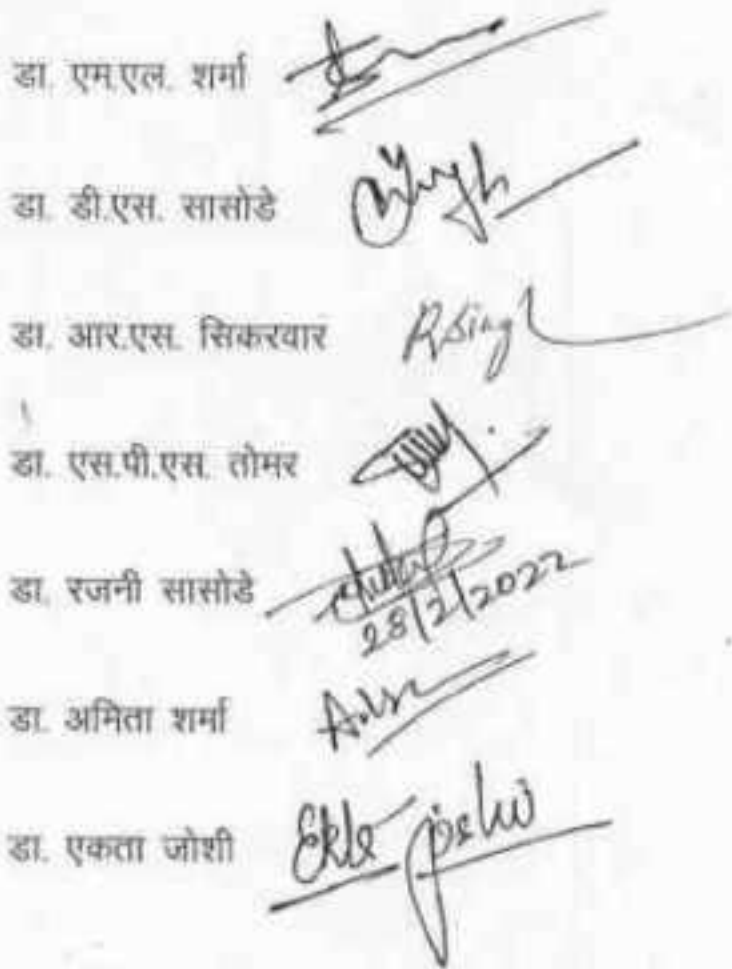 डा. एम.एल. शर्मा
डा. डी.एस. सासोडे
डा. आर.एस. सिकरवार RSingh
डा. एस.पी.एस. तोमर
डा. रजनी सासोडे
28/2/2022
डा. अमिता शर्मा
डा. एकता जोशी Ekta Joshi